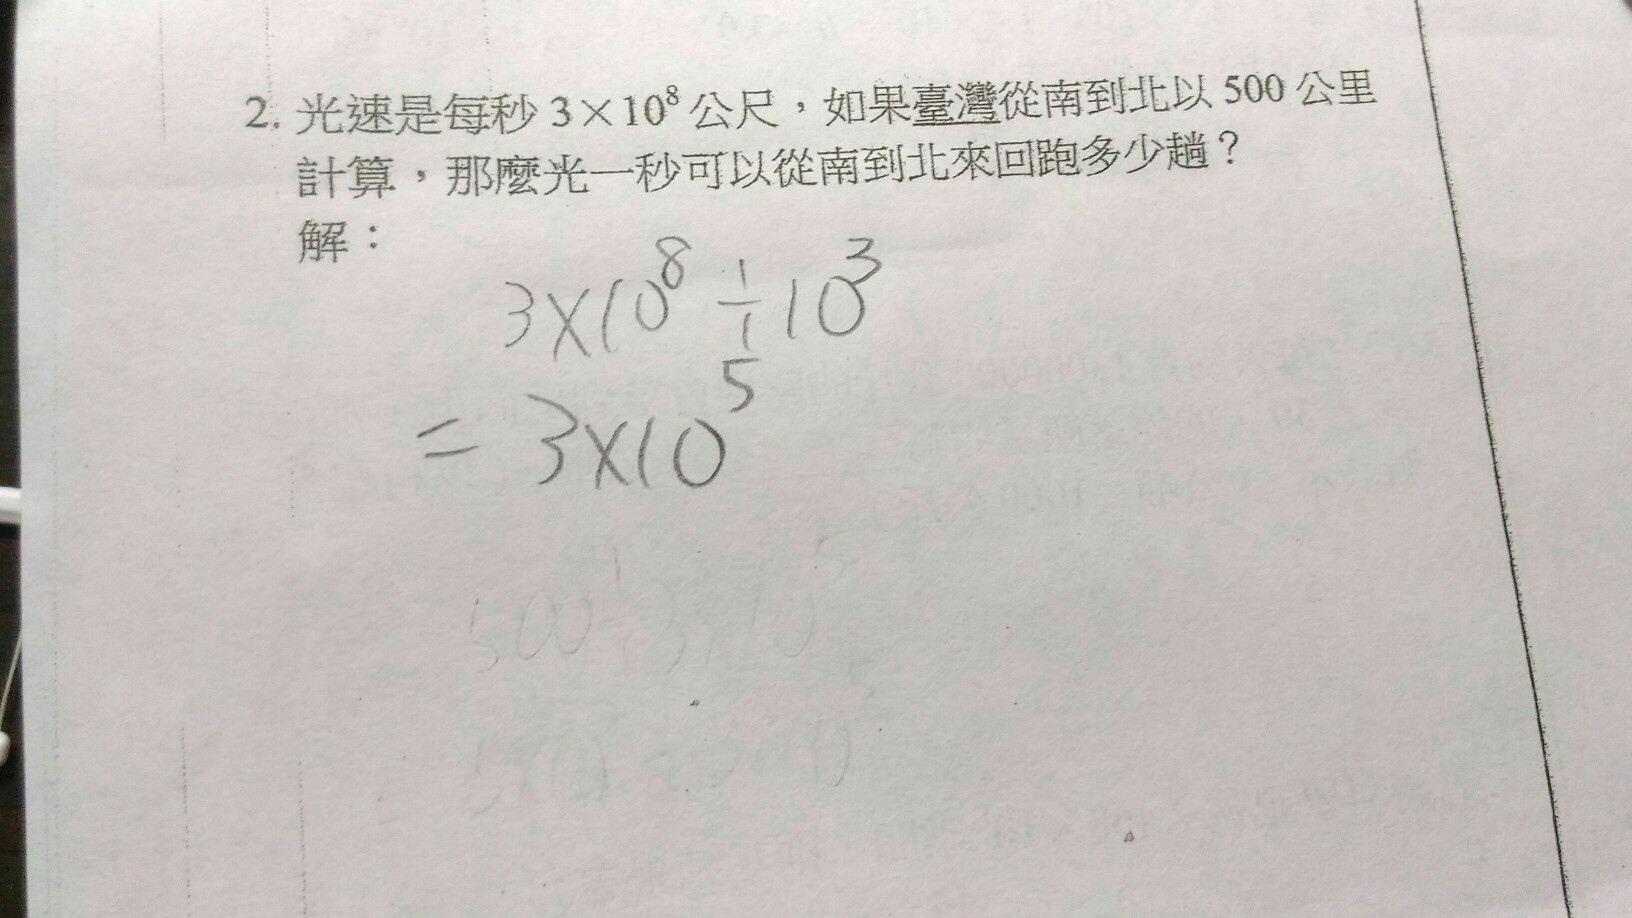 2. 光速是每秒 3×10⁸ 公尺，如果臺灣從南到北以 500 公里
計算，那麼光一秒可以從南到北來回跑多少趟？
解：
3×10⁸÷10³
= 3×10⁵